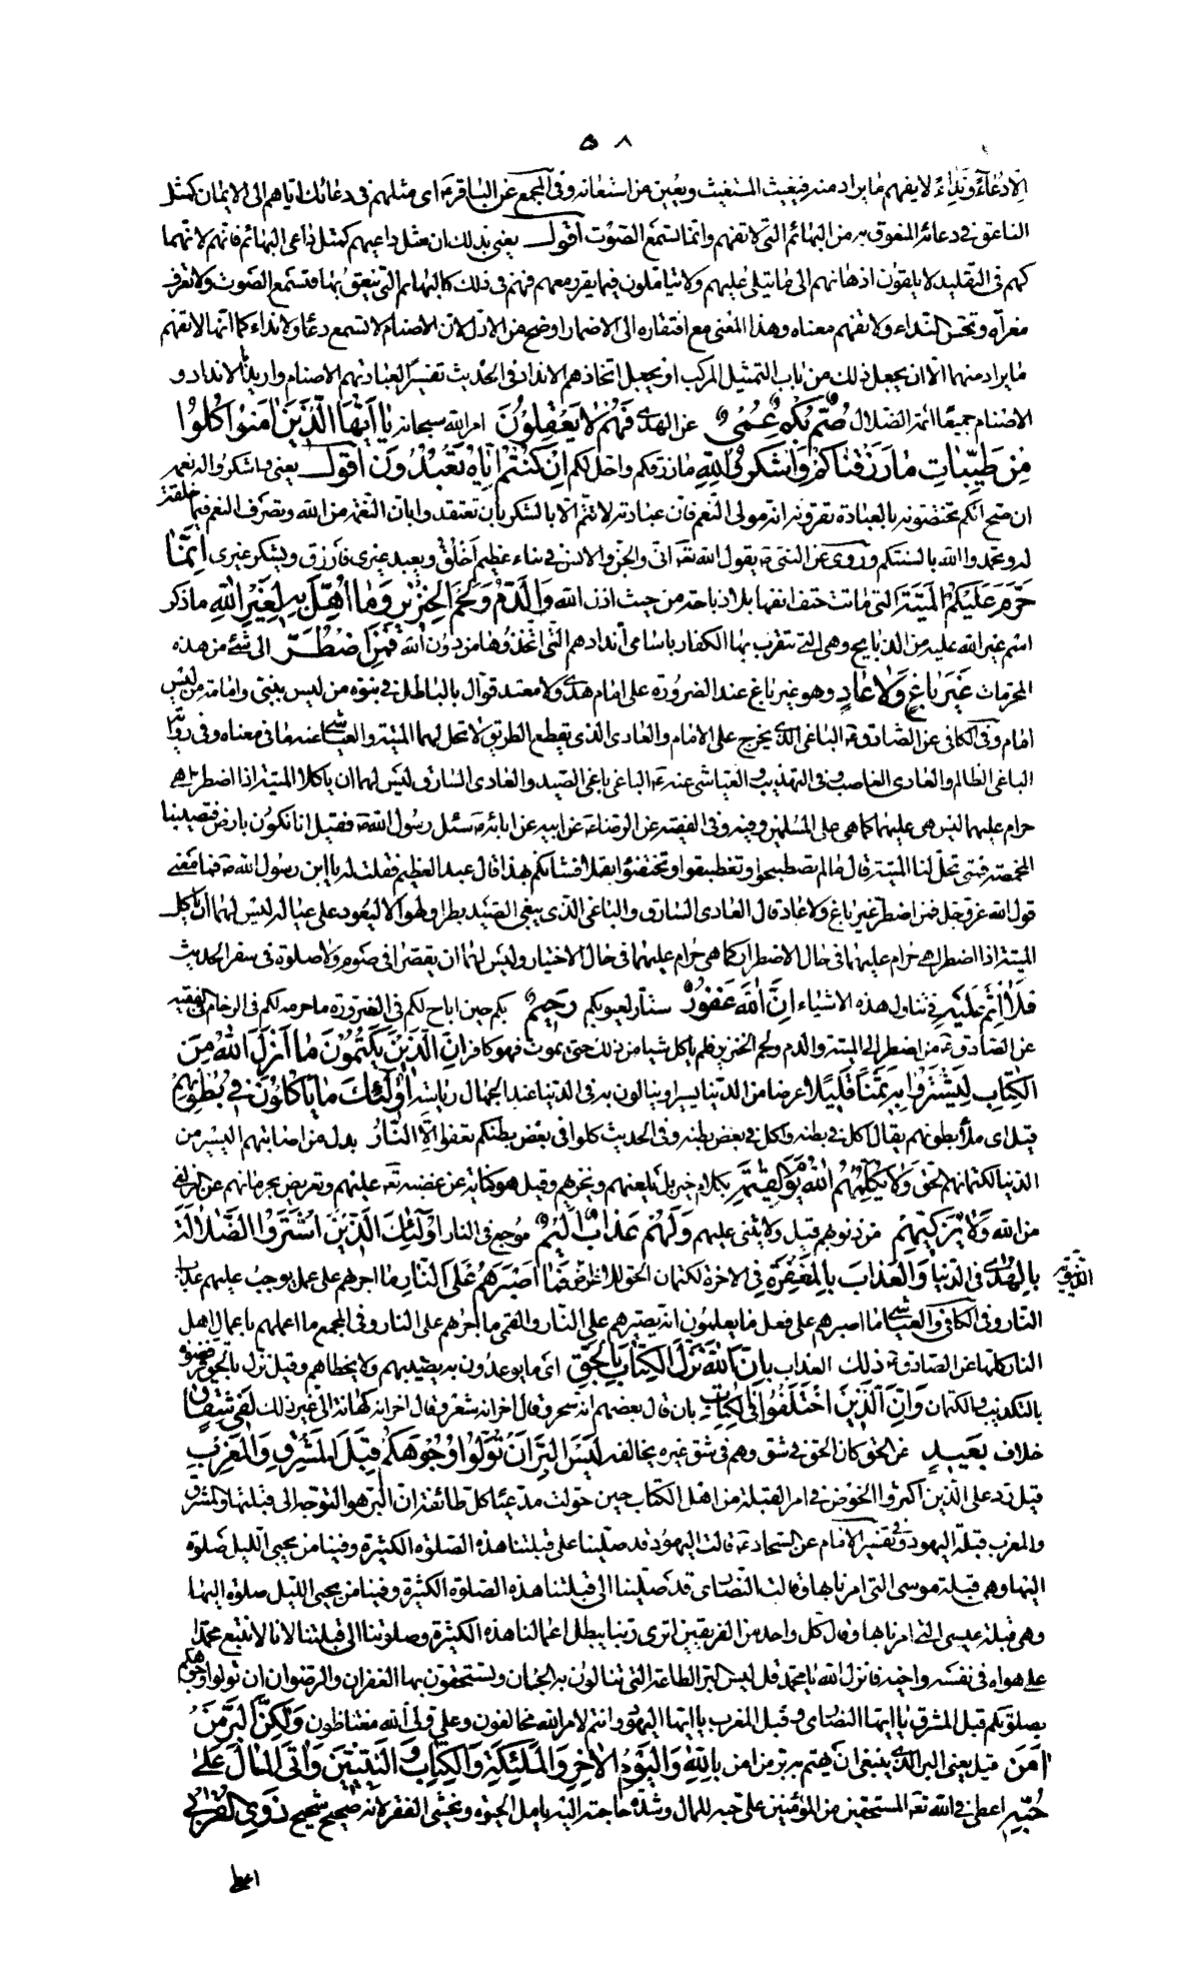 ٥٨
الا دعاء ونداء لا يفهم ما يراد منه فيغيث المستغيث ويعين من استعانه وفي المجمع عن الباقر ع اى مثلهم فى دعائك اياهم الى الايمان كمثل
الناعق فى دعائه المنعوق به من البهائم التى لا تفهم وانما تسمع الصوت أقول يعنى بذلك ان مثل داعيهم كمثل داعى البهائم فانهم لانهما
كهم فى التقليد لا يلقون اذهانهم الى ما يتلى عليهم ولا يتأملون فيما يقرر معهم فهم فى ذلك كالبهائم التى ينعق بها فتسمع الصوت ولا تعرف
مغزاه وتحس النداء ولا تفهم معناه وهذا المعنى مع افتقاره الى الاضمار اوضح من الاول لان الاصنام لا تسمع دعاء ولا نداء كما انها لا تفهم
ما يراد منها الا ان يجعل ذلك من باب التمثيل المركب او يجعل اتخاذهم الانداد فى الحديث تفسيرا لعبادتهم الاصنام واريد بالانداد و
الاصنام جميعا ائمة الضلال صُمٌّ بُكْمٌ عُمْيٌ عن الهدى فَهُمْ لا يَعْقِلُونَ امر الله سبحانه يا اَيُّهَا الَّذينَ امَنُوا كُلُوا
مِنْ طَيِّباتِ ما رَزَقْناكُمْ وَاشْكُرُوا لِلّهِ ما رزقكم واحل لكم اِنْ كُنْتُمْ اِيّاهُ تَعْبُدُونَ أقول يعنى واشكروا له نعمه
ان صح انكم تخصونه بالعبادة تقرون انه مولى النعم فان عبادته لا تتم الا بالشكر بان تعتقدوا بان النعمة من الله وتصرف النعم فيما خلقت
له وتحمدوا الله بالسنتكم وروى عن النبى ص يقول الله تعه انى والجن والانس فى نباء عظيم اخلق ويعبد غيرى وارزق ويشكر غيرى اِنَّما
حَرَّمَ عَلَيْكُمُ الْمَيْتَةَ التى ماتت حتف انفها بلا ذباحة من حيث اذن الله وَالدَّمَ وَلَحْمَ الْخِنْزيرِ وَما اُهِلَّ بِهِ لِغَيْرِ اللهِ ما ذكر
اسم غير الله عليه من الذبايح وهى التى تتقرب بها الكفار باسامى أندادهم التى اتخذوها من دون الله فَمَنِ اضْطُرَّ الى شئ من هذه
المحرمات غَيْرَ باغٍ وَلا عادٍ وهو غير باغ عند الضرورة على امام هدى ولا معتد قوال بالباطل فى نبوة من ليس بنبى وامامة من ليس
امام وفى الكافى عن الصادق ع الباغى الذى يخرج على الامام والعادى الذى يقطع الطريق لا تحل لهما الميتة والعياشى عنه ما فى معناه وفى رواية
الباغى الظالم والعادى الغاصب وفى التهذيب والعياشى عنه ع الباغى باغى الصيد والعادى السارق ليس لهما ان ياكلا الميتة اذا اضطرا هى
حرام عليهما ليس هى عليهما كما هى على المسلمين وفيه وفى الفقيه عن الرضا ع عن ابيه عن ابائه ع سئل رسول الله ص فقيل انا نكون بارض فتصيبنا
المخمصة فمتى تحل لنا الميتة قال ما لم تصطبحوا وتغتبقوا او تحتفئوا بقلا فشانكم بهذا قال عبد العظيم فقلت له يا ابن رسول الله ص فما معنى
قول الله عز وجل فمن اضطر غير باغ ولا عاد قال العادى السارق والباغى الذى يبغى الصيد بطرا ولهوا لا ليعود على عياله ليس لهما ان ياكلا
الميتة اذا اضطرا هى حرام عليهما فى حال الاضطرار كما هى حرام عليهما فى حال الاختيار وليس لهما ان يقصرا فى صوم ولا صلوة فى سفر الحديث
فَلا اِثْمَ عَلَيْهِ فى تناول هذه الاشياء اِنَّ اللهَ غَفُورٌ ستار لعيوبكم رَحيمٌ بكم حين اباح لكم فى الضرورة ما حرمه لكم فى الرخاء فى الفقيه
عن الصادق ع من اضطر الى الميتة والدم ولحم الخنزير فلم ياكل شيئا من ذلك حتى يموت فهو كافر اِنَّ الَّذينَ يَكْتُمُونَ ما اَنْزَلَ اللهُ مِنَ
الْكِتابِ لِيَشْتَرُوا بِهِ ثَمَنًا قَليلًا عرضا من الدنيا يسيرا وينالون به فى الدنيا عند الجهال رياسة اُولئِكَ ما يَاْكُلُونَ فى بُطُونِهِمْ
قيل اى ملأ بطونهم يقال اكل فى بطنه واكل فى بعض بطنه وفى الحديث كلوا فى بعض بطنكم تعفوا اِلَّا النّارَ بدلا من اصابتهم اليسير من
الدنيا لكتمانهم الحق وَلا يُكَلِّمُهُمُ اللهُ يَوْمَ الْقِيمَةِ بكلام خير بل يلعنهم ويخزيهم وقيل هو كناية عن غضبه تعه عليهم وتعريض بحرمانهم عن الزلفى
من الله وَلا يُزَكّيهِمْ من ذنوبهم قيل ولا يثنى عليهم وَلَهُمْ عَذابٌ اَليمٌ موجع فى النار اُولئِكَ الَّذينَ اشْتَرَوُا الضَّلالَةَ
بِالْهُدى فى الدنيا وَالْعَذابَ بِالْمَغْفِرَةِ فى الاخرة لكتمان الحق للاغراض فَما اَصْبَرَهُمْ عَلَى النّارِ ما اجرهم على عمل يوجب عليهم عذاب
الدنيوية
النار وفى الكافى والعياشى ما اصبرهم على فعل ما يعلمون انه يصيرهم على النار والقمى ما اجرهم على النار وفى المجمع ما اعملهم باعمال اهل
النار كلها عن الصادق ع ذلِكَ العذاب بِاَنَّ اللهَ نَزَّلَ الْكِتابَ بِالْحَقِّ اى ما يوعدون به يصيبهم ولا يخطاهم وقيل نزل بالحق فرفضوه
بالتكذيب والكتمان وَاِنَّ الَّذينَ اخْتَلَفُوا فِى الْكِتابِ بان قال بعضهم انه سحر وقال اخر انه شعر وقال اخر انه كهانة الى غير ذلك لَفى شِقاقٍ
خلاف بَعيدٍ عن الحق كان الحق فى شق وهم فى شق غيره يخالفه لَيْسَ الْبِرَّ اَنْ تُوَلُّوا وُجُوهَكُمْ قِبَلَ الْمَشْرِقِ وَالْمَغْرِبِ
قيل رد على الذين اكثروا الخوض فى امر القبلة من اهل الكتاب حين حولت مدعيا كل طائفة ان البر هو التوجه الى قبلتها والمشرق
والمغرب قبلة اليهود وفى تفسير الامام عن السجاد ع قالت اليهود قد صلينا على قبلتنا هذه الصلوة الكثيرة وفينا من يحيى الليل صلوة
اليها وهى قبلة موسى التى امرنا بها وقالت النصارى قد صلينا الى قبلتنا هذه الصلوة الكثيرة وفينا من يحيى الليل صلوة اليها
وهى قبلة عيسى التى امرنا بها وقال كل واحد من الفريقين اترى ربنا يبطل اعمالنا هذه الكثيرة وصلوتنا الى قبلتنا لانا لا نتبع محمدا
على هواه فى نفسه واخيه فانزل الله يا محمد قل ليس البر الطاعة التى تنالون بها الجنان وتستحقون بها الغفران والرضوان ان تولوا وجوهكم
بصلوتكم قبل المشرق يا ايها النصارى وقبل المغرب يا ايها اليهود وانتم لامر الله مخالفون وعلى ولى الله مغتاظون وَلكِنَّ الْبِرَّ مَنْ
امَنَ قيل يعنى البر الذى ينبغى ان يهتم به بر من امن بِاللهِ وَالْيَوْمِ الْاخِرِ وَالْمَلئِكَةِ وَالْكِتابِ وَالنَّبِيّينَ وَاتَى الْمالَ عَلى
حُبِّهِ اعطى فى الله تعه المستحقين من المؤمنين على حبه للمال وشدة حاجته اليه يامل الحيوة ويخشى الفقر لانه صحيح شحيح ذَوِى الْقُرْبى
اعطى